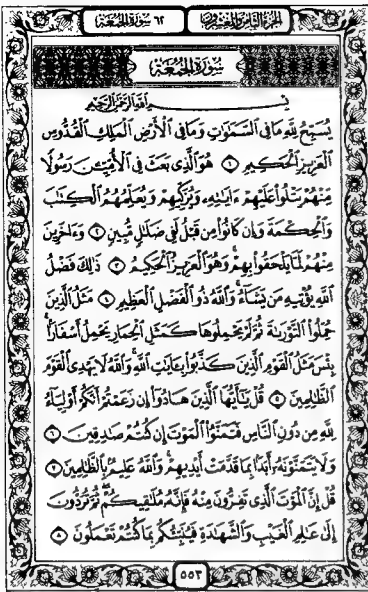 الجزء الثامن والعشرون ٦٢ سورة الجمعة
سورة الجمعة
بسم الله الرحمن الرحيم
يُسَبِّحُ لِلَّهِ مَا فِي السَّمَاوَاتِ وَمَا فِي الْأَرْضِ الْمَلِكِ الْقُدُّوسِ
الْعَزِيزِ الْحَكِيمِ ١ هُوَ الَّذِي بَعَثَ فِي الْأُمِّيِّينَ رَسُولًا
مِنْهُمْ يَتْلُوا عَلَيْهِمْ ءَايَاتِهِ وَيُزَكِّيهِمْ وَيُعَلِّمُهُمُ الْكِتَابَ
وَالْحِكْمَةَ وَإِنْ كَانُوا مِنْ قَبْلُ لَفِي ضَلَالٍ مُبِينٍ ٢ وَءَاخَرِينَ
مِنْهُمْ لَمَّا يَلْحَقُوا بِهِمْ وَهُوَ الْعَزِيزُ الْحَكِيمُ ٣ ذَلِكَ فَضْلُ
اللَّهِ يُؤْتِيهِ مَنْ يَشَاءُ وَاللَّهُ ذُو الْفَضْلِ الْعَظِيمِ ٤ مَثَلُ الَّذِينَ
حُمِّلُوا التَّوْرَاةَ ثُمَّ لَمْ يَحْمِلُوهَا كَمَثَلِ الْحِمَارِ يَحْمِلُ أَسْفَارًا
بِئْسَ مَثَلُ الْقَوْمِ الَّذِينَ كَذَّبُوا بِـَٔايَاتِ اللَّهِ وَاللَّهُ لَا يَهْدِي الْقَوْمَ
الظَّالِمِينَ ٥ قُلْ يَاأَيُّهَا الَّذِينَ هَادُوا إِنْ زَعَمْتُمْ أَنَّكُمْ أَوْلِيَاءُ
لِلَّهِ مِنْ دُونِ النَّاسِ فَتَمَنَّوُا الْمَوْتَ إِنْ كُنْتُمْ صَادِقِينَ ٦
وَلَا يَتَمَنَّوْنَهُ أَبَدًا بِمَا قَدَّمَتْ أَيْدِيهِمْ وَاللَّهُ عَلِيمٌ بِالظَّالِمِينَ ٧
قُلْ إِنَّ الْمَوْتَ الَّذِي تَفِرُّونَ مِنْهُ فَإِنَّهُ مُلَاقِيكُمْ ثُمَّ تُرَدُّونَ
إِلَى عَالِمِ الْغَيْبِ وَالشَّهَادَةِ فَيُنَبِّئُكُمْ بِمَا كُنْتُمْ تَعْمَلُونَ ٨
٥٥٣